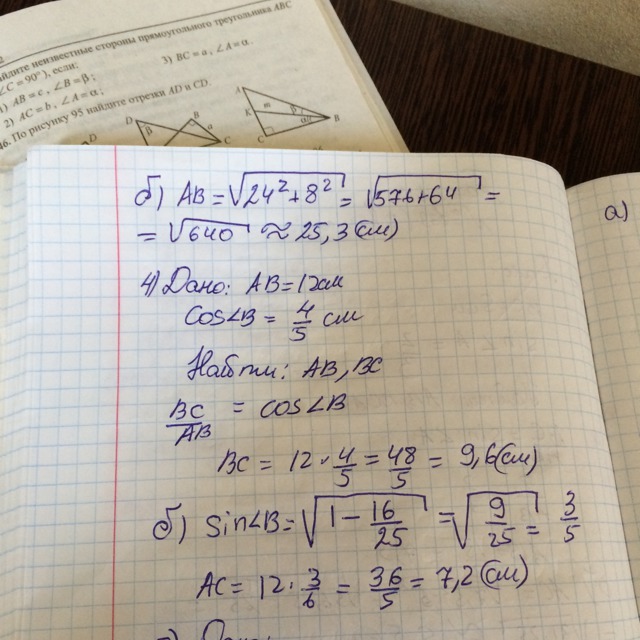 айдите неизвестные стороны прямоугольного треугольника ABC
∠C = 90°), если:
1) AB = c, ∠B = β;
3) BC = a, ∠A = α.
2) AC = b, ∠A = α;
46. По рисунку 95 найдите отрезки AD и CD.
D
D
B
β
a
C
A
m
K
β
B
C
б) AB = √24² + 8² = √576 + 64 =
= √640 ≈ 25,3 (см)
4) Дано: AB = 12 см
cos∠B = 4/5 см
Найти: AB, BC
BC/AB = cos∠B
BC = 12 · 4/5 = 48/5 = 9,6 (см)
б) sin∠B = √1 - 16/25 = √9/25 = 3/5
AC = 12 · 3/6 = 36/5 = 7,2 (см)
а)